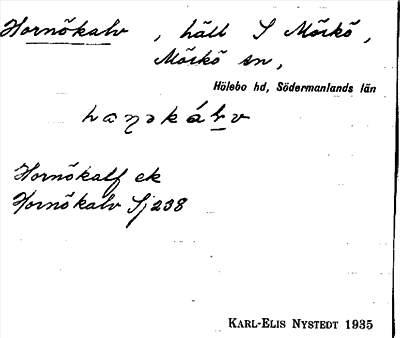 Hornökalv, häll S Mörkö,
Mörkö sn,
Hölebo hd, Södermanlands län
Hornökalf ek
Hornökalv Sj 238
KARL-ELIS NYSTEDT 1935